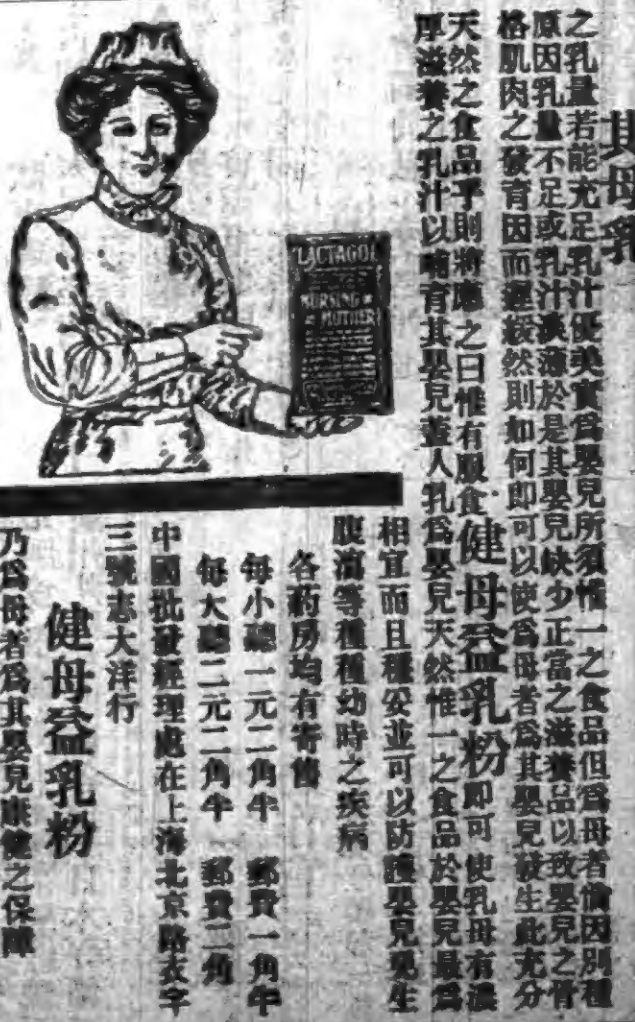 其母乳
之乳量若能充足乳汁優美實爲嬰兒所須惟一之食品但爲母者倘因別種
原因乳量不足或乳汁淡薄於是其嬰兒缺少正當之滋養品以致嬰兒之骨
格肌肉之發育因而遲緩然則如何即可以使爲母者爲其嬰兒發生此充分
天然之食品乎則將應之曰惟有服食健母益乳粉即可使乳母有濃
厚滋養之乳汁以哺育其嬰兒蓋人乳爲嬰兒天然惟一之食品於嬰兒最爲
相宜而且穩妥並可以防護嬰兒免生
腹瀉等種種幼時之疾病
各葯房均有寄售
每小聽一元二角半 郵費一角半
每大聽二元二角半 郵費二角
中國批發經理處在上海北京路衣字
三號志大洋行
健母益乳粉
乃爲母者爲其嬰兒康健之保障
LACTAGOL
NURSING
MOTHER